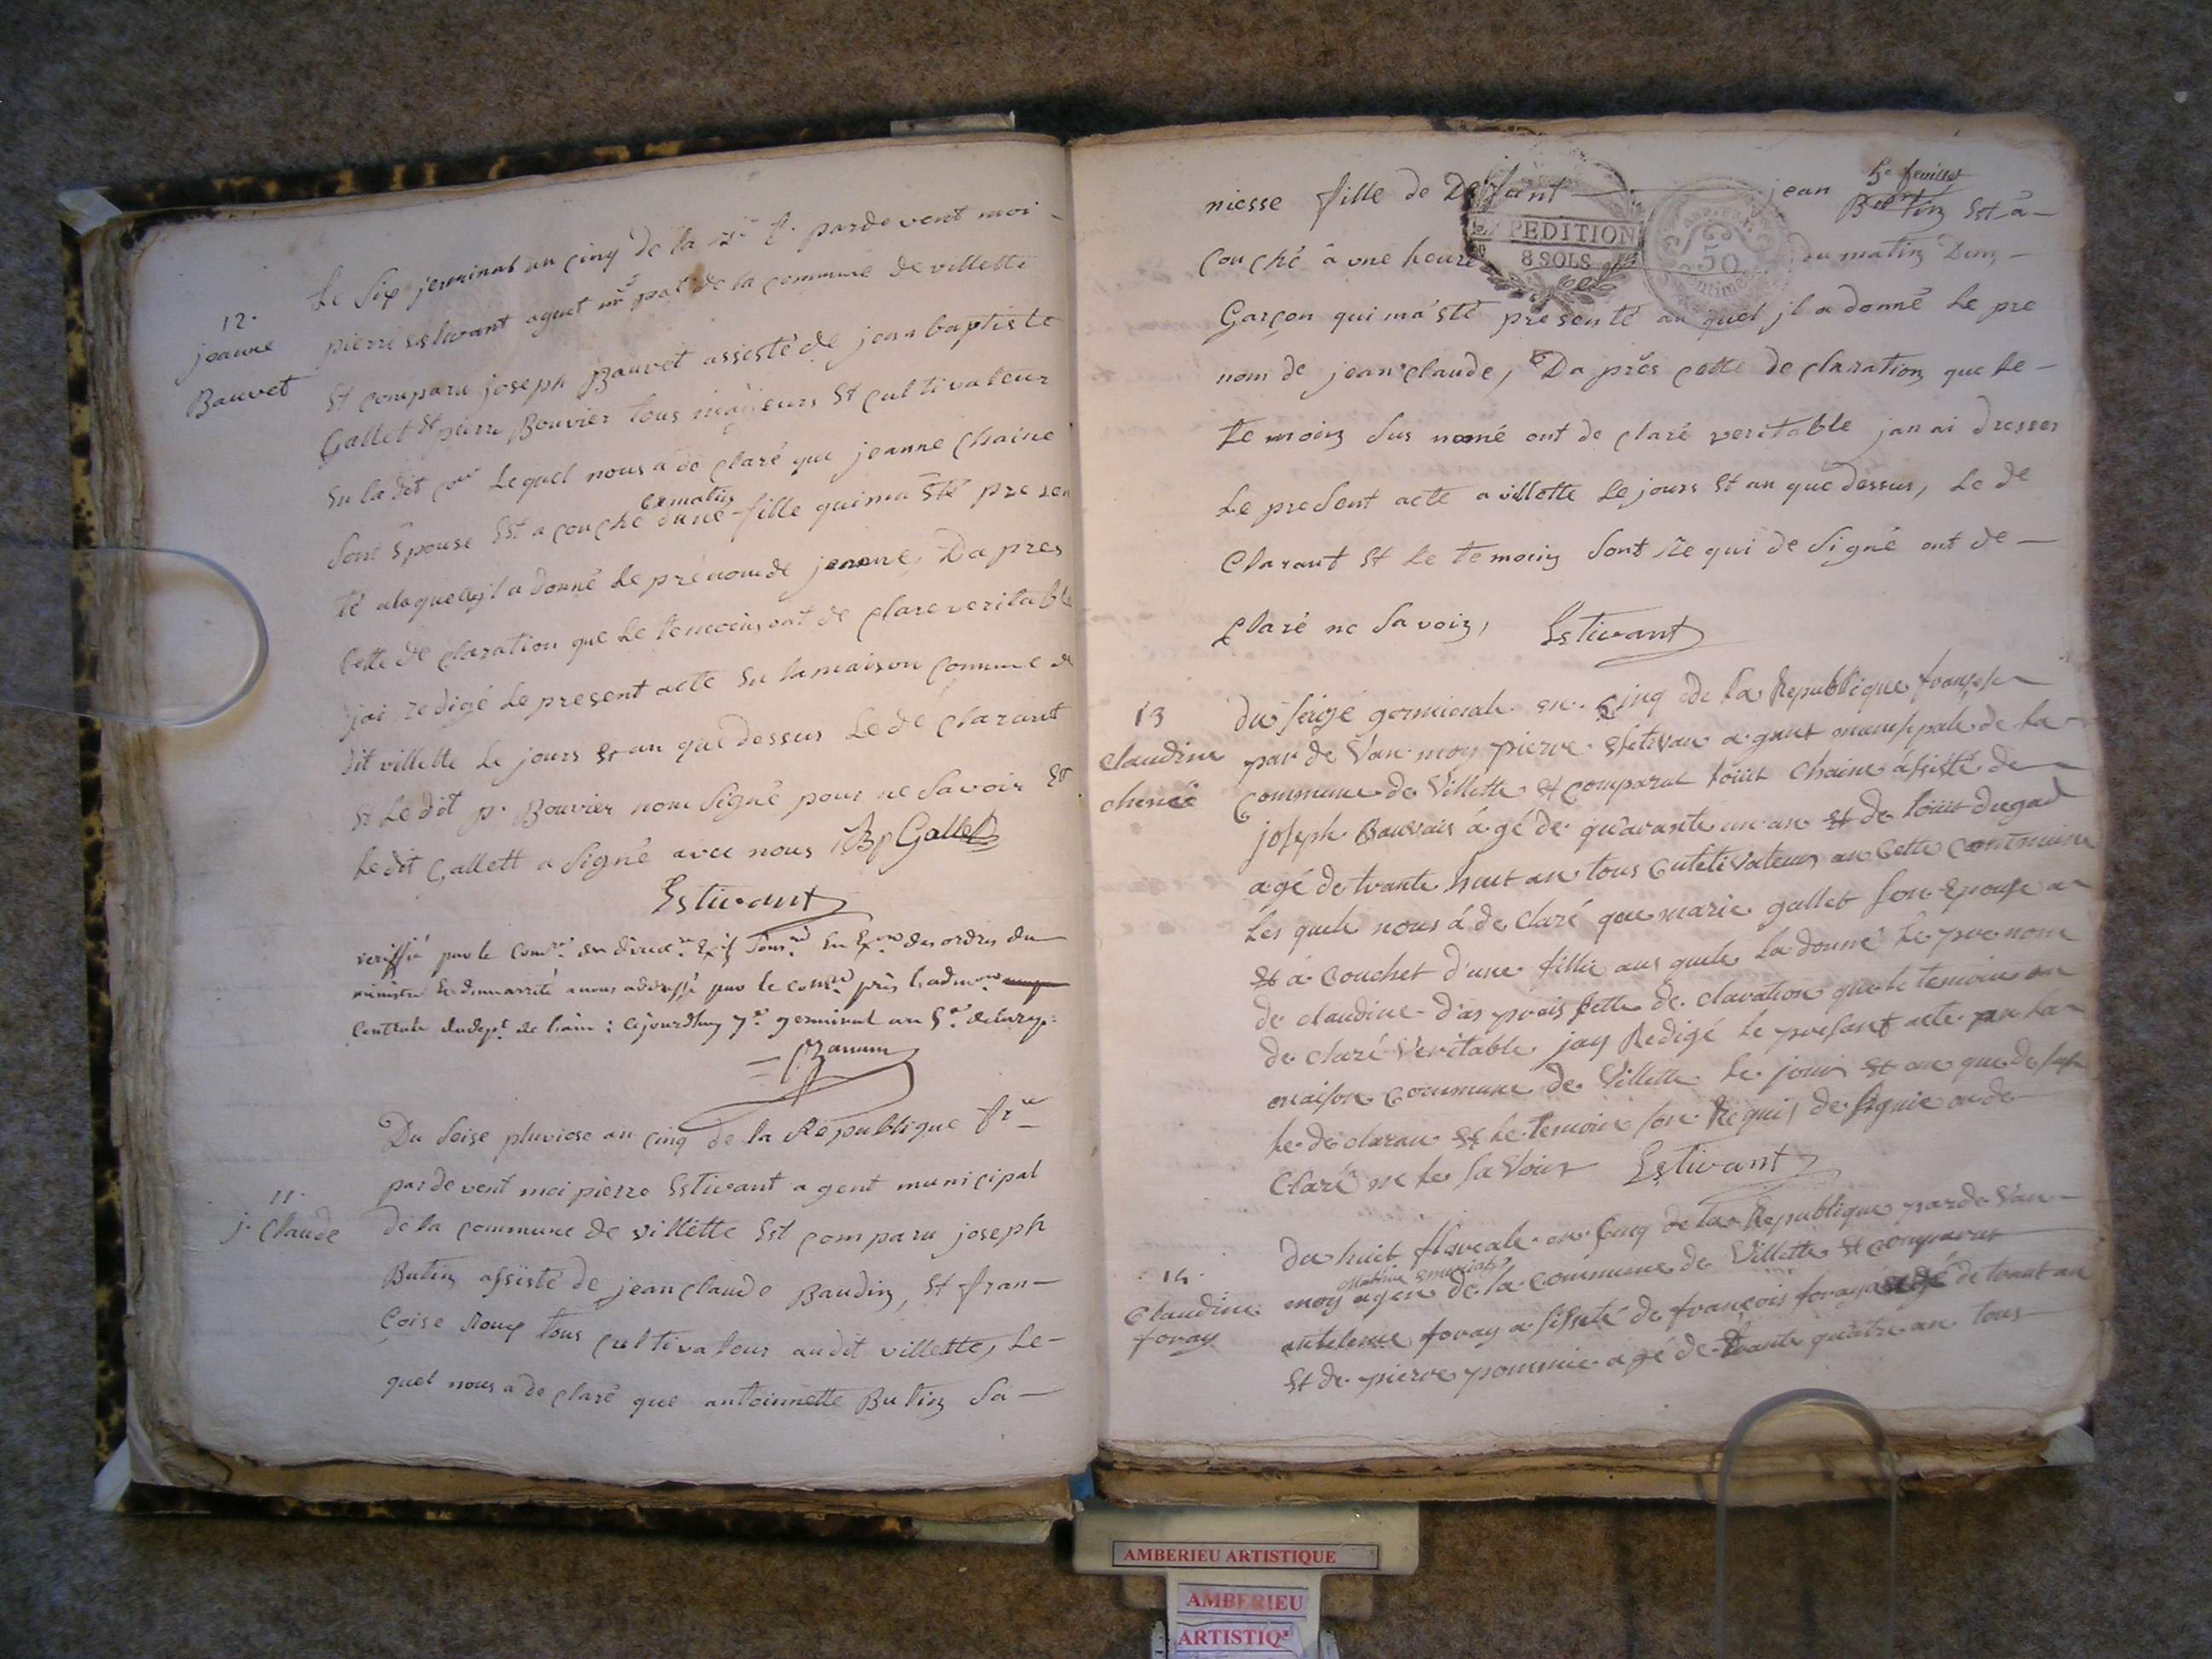 12.
jeanne
Bauvet
Le six jerminal an cinq de la rque f. pardevent moi
pierre estivant agent mu pal de la commune de villette
St comparu joseph Bauvet assisté de jean baptiste
Gallet St pierre Bouvier tous majeurs St cultivateur
Su la dit Lequel nous a de claré que jeanne chaine
ce matin
sont Epouse Est acouché dune fille qui ma Eté presen
té alaquelle jl a donné Le prénom de jeanne Da pres
Cette de claration que Le temoins ont de claré veritable
jai redigé Le present acte Su la maison commune de
dit villette Le jours St an que dessus Le de clarant
St Le dit p. Bouvier nom Signé pour ne Savoir St
Le dit Gallett a Signé avec nous JBp Gallet
Estivant
veriffié par le des ordres du
ministre a nous adressé par le près l'admon
Centrale du dept de l'ain : cejourdhuy 7e germinal an 5e
11.
j. Claude
Du Seise pluviose an cinq de la République fre
pardevent moi pierre Estivant agent municipal
de la commune de villette Est comparu joseph
Butin assisté de jean claude Baudin, St fran-
çoise Roux tous cultivateur audit villette, Le-
quel nous a de claré que antoinnette Butin Sa-
5e feuillet
niesse fille de Deffunt jean Butin Est a-
EXPEDITION
8 SOLS
50
centimes
couché à une heure du matin Dun-
Garçon qui ma Eté presenté au quel jl a donné Le pre
nom de jean claude, Da près cette de claration que Le-
temoin sus nomé ont de claré veritable jan ai dresser
Le present acte a villette Le jours St an que dessus, Le de
clarant St Le temoin Sont re qui de Signé ont de-
claré ne Savoir, Estivant
13
claudine
chenée
du seize germinale an cinq de la Republique franse
par de van moy pierre Estivan agant munisipale de la
commune de Villette St comparut louit chaine asisté de
joseph Bauvais agé de quarante un an St de louit dugad
agé de trante huit an tous cutetivateur an cette commune
Les quele nous a de claré que marie gallet son Epouse a
St a couchet d'une fillie aus quele la donné le pre nom
de claudine d'a prais sette de claration que le temoin on
de claré veritable jay Redigé le presant acte an la
maison commune de Villette le jour St an que desu
le de claran St le temoin son Re qui de signie on de
claré ne le savoir Estivant
14.
Claudine
foray
du huit floreale an cinq de la Republique par de van
moy agen de la commune de Villette St comparut
antelme foray asisté de françois foray agé de trant an
St de pierre pommie agé de trante quatre an tous
AMBERIEU ARTISTIQUE
AMBERIEU
ARTISTIQ